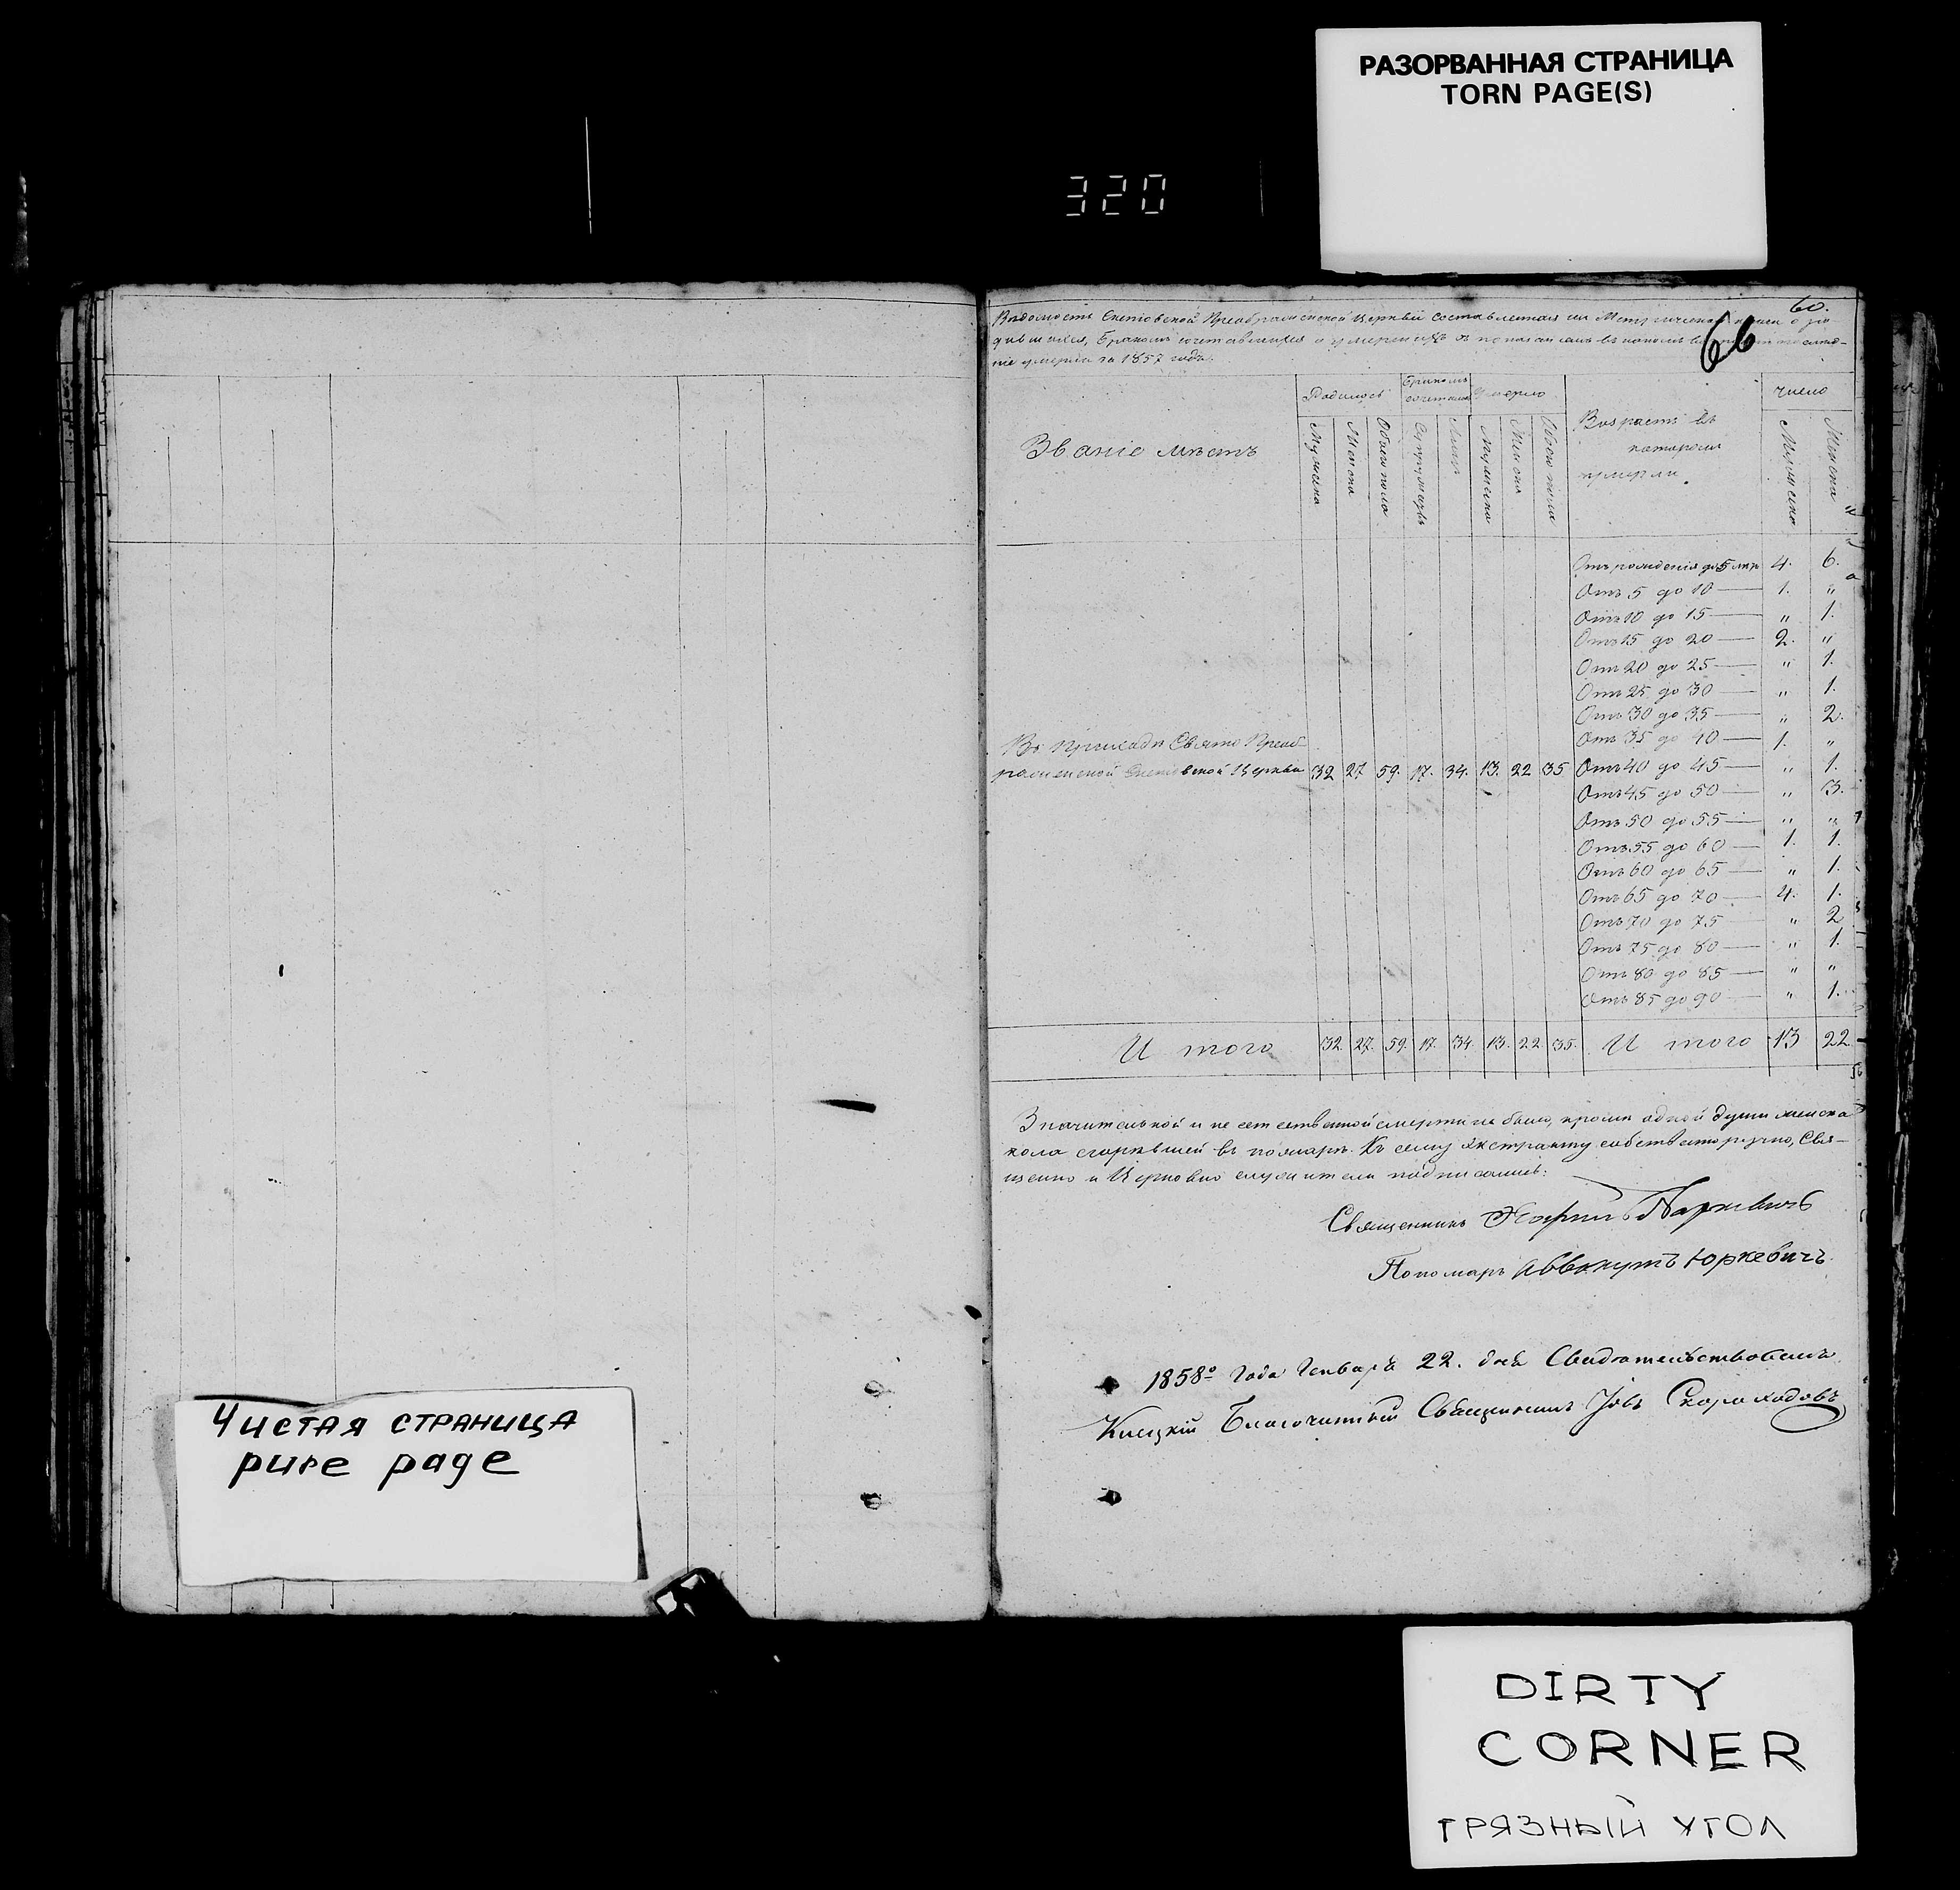 РАЗОРВАННАЯ СТРАНИЦА
TORN PAGE(S)
320
60.
66
Вѣдомость Преображенской Церкви составленная изъ Метрической книги о ро-
дившихся, бракомъ сочетавшихся и умершихъ
умерли за 1857 годъ.
Званіе мѣстъ
Родилось
Бракомъ сочетались
Умерло
Возрастъ въ которомъ умерли.
Число
Мужеска
Женска
Обоего пола
Супружествъ
Лицъ
Мужеска
Женска
Обоего пола
Мужеска
Женска
Отъ рожденія до 5 лѣтъ 4. 6.
Отъ 5 до 10 — 1. "
Отъ 10 до 15 — " 1.
Отъ 15 до 20 — 2. "
Отъ 20 до 25 — " 1.
Отъ 25 до 30 — " 1.
Отъ 30 до 35 — " 2.
Отъ 35 до 40 — 1. "
Въ приходѣ Свято Преоб-
раженской Церкви 32 27 59. 17. 34. 13. 22 35 Отъ 40 до 45 — " 1.
Отъ 45 до 50 — " 3.
Отъ 50 до 55 — " "
Отъ 55 до 60 — 1. 1.
Отъ 60 до 65 — " 1.
Отъ 65 до 70 — 4. 1.
Отъ 70 до 75 — " 2
Отъ 75 до 80 — " 1.
Отъ 80 до 85 — " "
Отъ 85 до 90 — " 1.
И того 32. 27. 59. 17. 34. 13. 22. 35. И того 13 22
Значительной и не естественной смерти не было, кромѣ одной души женска
пола сгорѣвшей въ пожарѣ. Къ сему экстракту собственноручно, Свя-
щенно и Церковно служители подписались:
Священникъ
Пономарь Аввакумъ Юркевичъ
1858го Года Генваря 22. дня Свидѣтельствовалъ
Клецкій Благочинный Священникъ Іовъ Скороходовъ
Чистая страница
pure page
DIRTY
CORNER
ГРЯЗНЫЙ УГОЛ